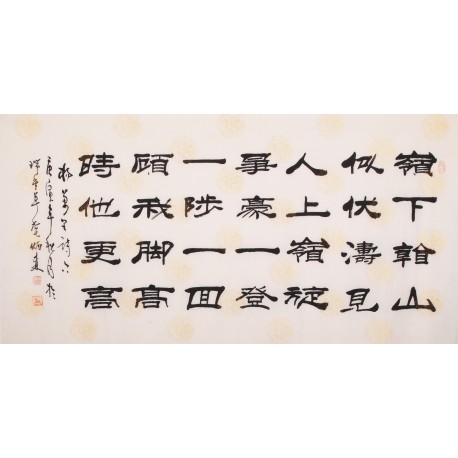 嶺下看山
似伏濤見
人上嶺旋
爭豪一登
一陟一回
顧我脚高
時他更高
楊萬里詩
庚寅年秋月於